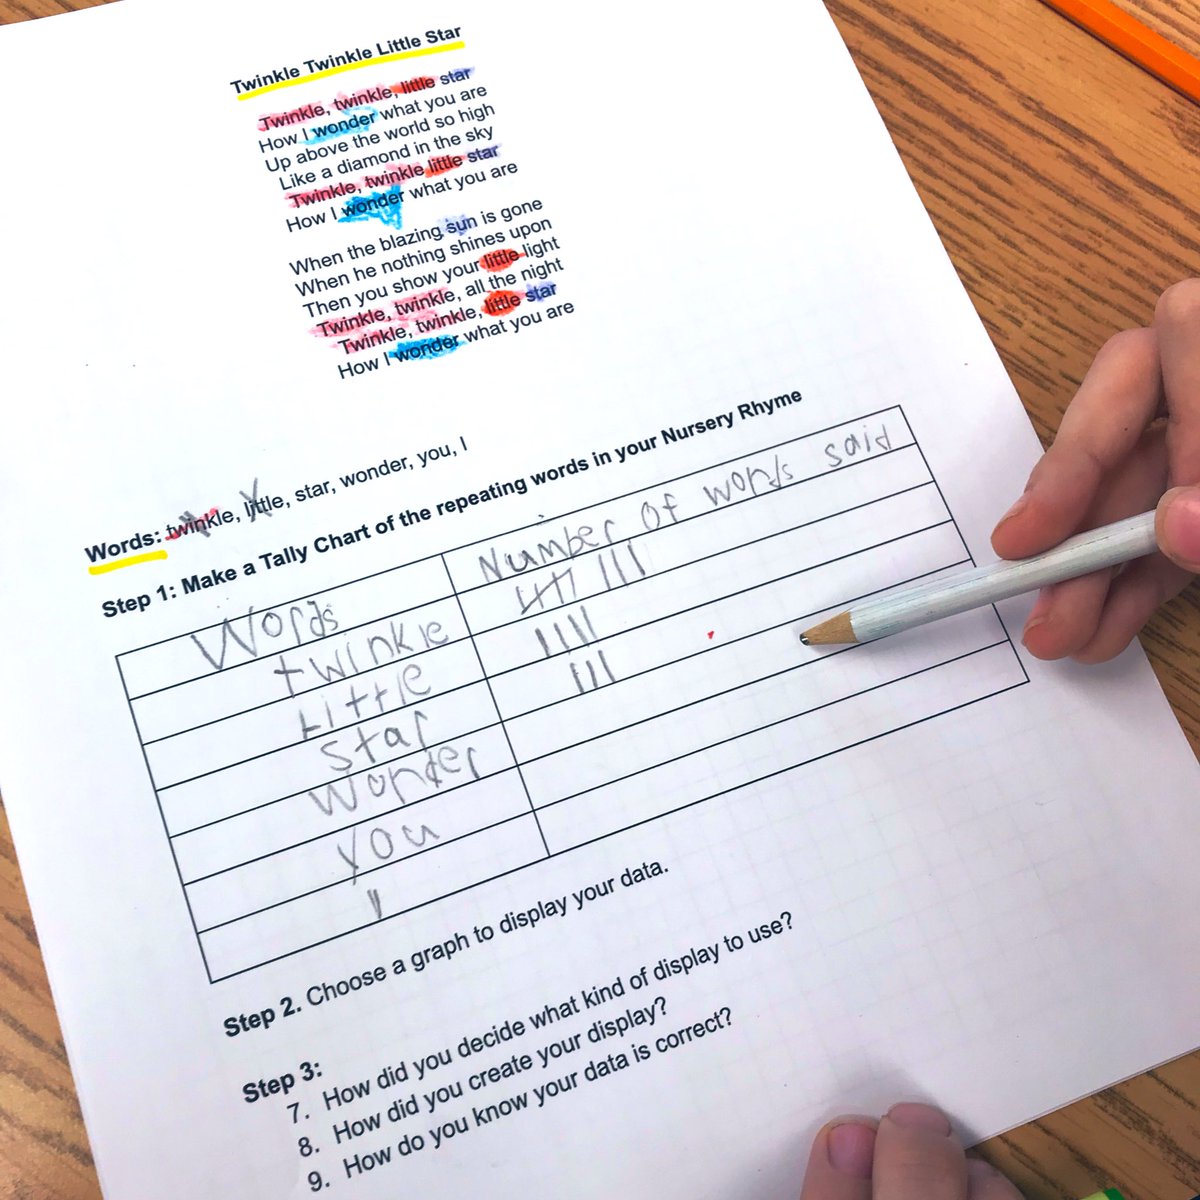 Twinkle Twinkle Little Star
Twinkle, twinkle, little star
How I wonder what you are
Up above the world so high
Like a diamond in the sky
Twinkle, twinkle little star
How I wonder what you are
When the blazing sun is gone
When he nothing shines upon
Then you show your little light
Twinkle, twinkle, all the night
Twinkle, twinkle, little star
How I wonder what you are
Words: twinkle, little, star, wonder, you, I
Step 1: Make a Tally Chart of the repeating words in your Nursery Rhyme
Words Number of words said
twinkle
Little
star
wonder
you
I
Step 2. Choose a graph to display your data.
Step 3:
7. How did you decide what kind of display to use?
8. How did you create your display?
9. How do you know your data is correct?